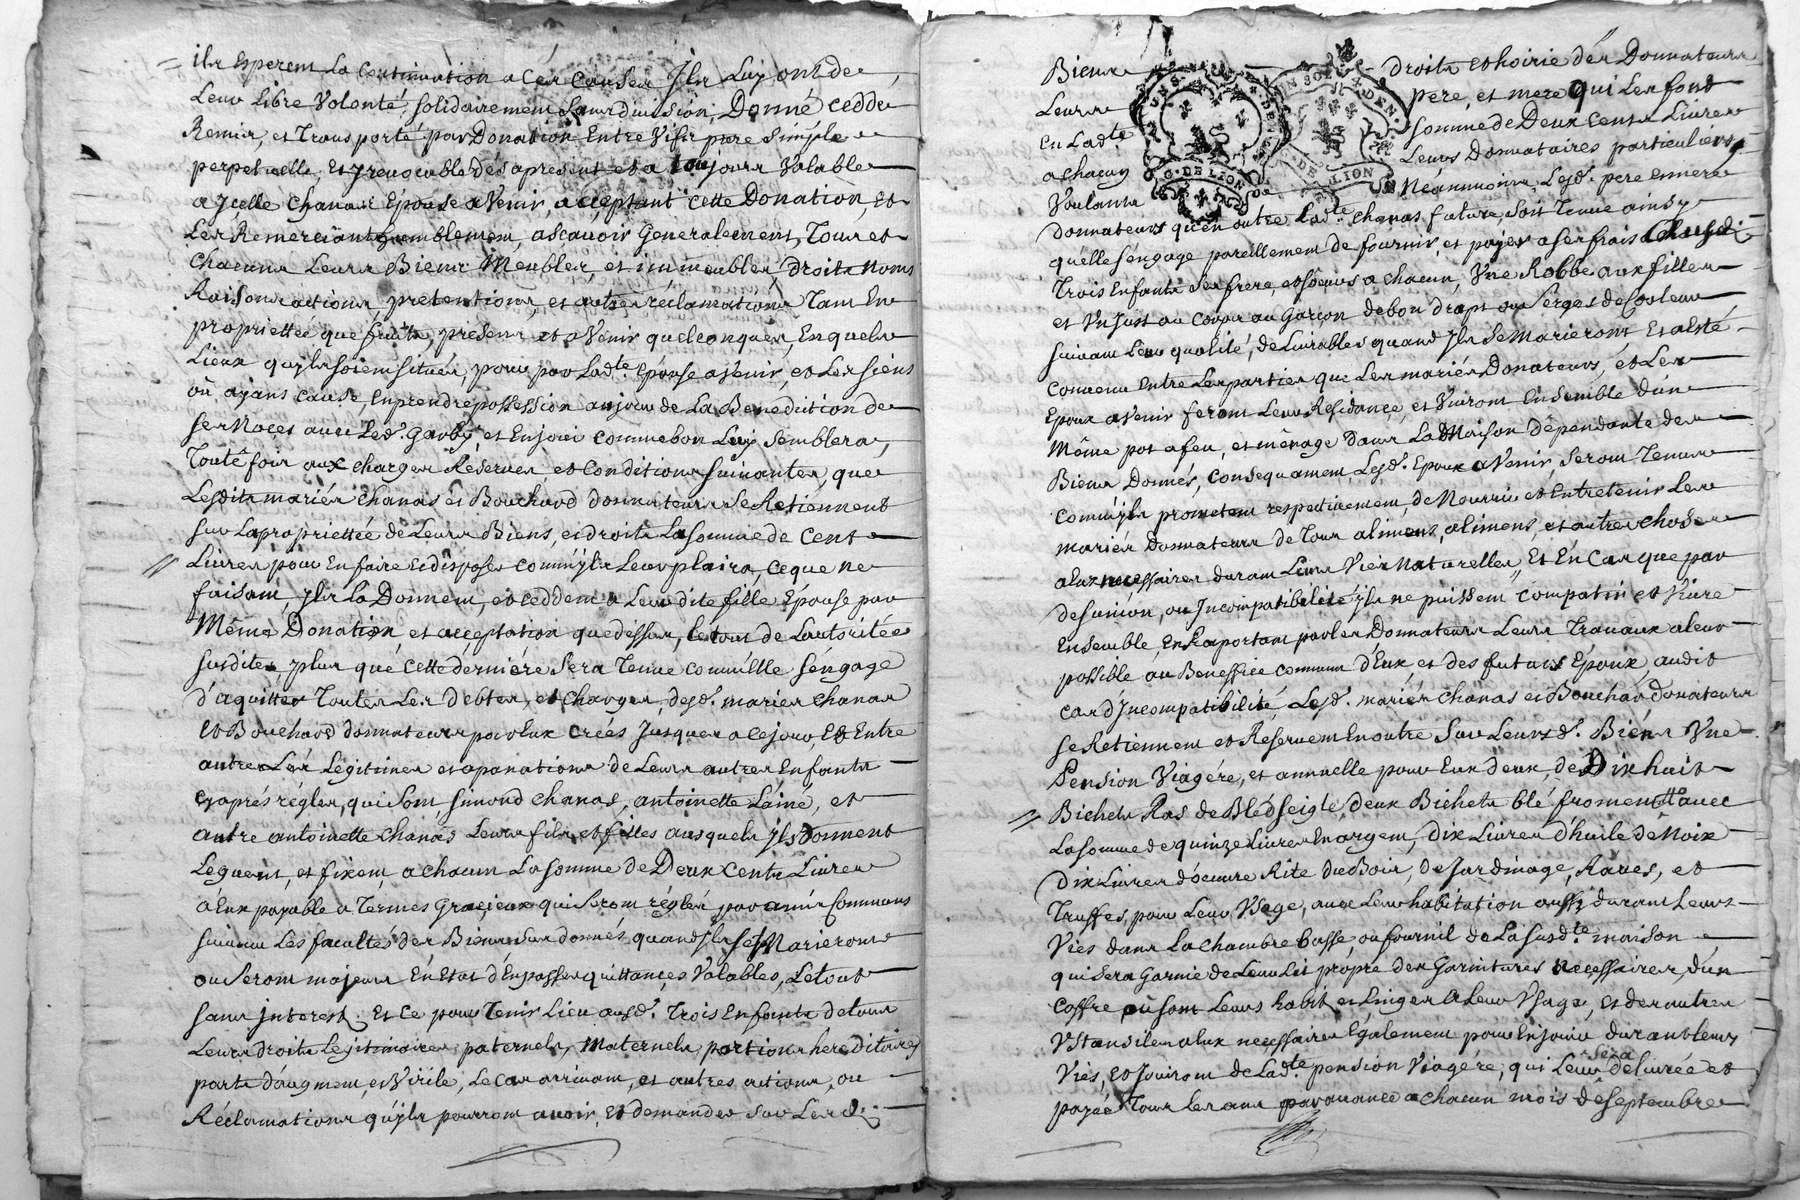 ils Esperent La Continuation a Ces Causes Ils Luy ont de
Leur Libre Volonté, Solidairement Sans division, Donné cedde
Remis, et Transporté par Donation Entre Vifs pure Simple
perpetuelle Et yrevocable dés apresent et a toujours Valable
a Jcelle Chanas Epouse a Venir, acceptant cette Donation, et
Les Remerciant humblement, ascavoir Generalement, Tous et
Chacuns Leurs Biens Meubles, et immeubles, droits Noms
Raisons actions, pretentions, et autres réclamations Tant En
propriettée que fruits, presens et a Venir quelconques, En quels
Lieux quyls soient situés, pour par Lad.te Epouse a venir, et Les siens
où ayans cause, En prendre possession au jour de La Benediction de
ses Noces avec Led. Garby, et En jouir comme bon Luy Semblera,
Toutefois aux charges Reserves, et Conditions Suivantes, que
Lesdits mariés Chanas et Bouchard donnateurs se Retiennent
sur La propriettée de Leurs Biens, et droits La somme de Cent
Livres pour En faire Et disposer comm'yls Leur plaira, ce que ne
faisant, yls La Donnent, et ceddent a Leur dite fille Epouse par
Même Donation et acceptation que dessus, le tout de Lautoritée
susdite, plus que cette derniére Sera Tenue comm'Elle S'éngage
d'aquitter Toutes Les debtes, et charges, desd. mariés Chanas
et Bouchard donnateurs par Eux Crées Jusques a ce jour, Et Entre
autres Les Légitimes et apanations de Leurs autres Enfants
cy aprés régles, qui sont Simond Chanas, antoinette L'ainé, et
autre antoinette Chanas Leurs fils et filles ausquels yls donnent
Leguent, et fixent, a chacun La somme de Deux Cents Livres
a Eux payable a Termes Gracieux qui seront réglés par amis Communs
suivant Les facultés des Biens sus donnés, quand yls se Marieront
ou Seront majeurs En Etat d'En passer quittances Valables, Le tout
sans interest. Et Ce pour Tenir Lieu ausd. Trois Enfants de tous
Leurs droits Legitimaires, paternels, Maternels, portions hereditaires
parts d'augment, et Virile, Le cas arrivant, et autres actions, ou
Réclamations qu'yls pourront avoir, Et demander sur Lesd.
Biens droits et hoirie des Donnateurs
Leurs pere, et mere qui Les font
en Lad.te somme de Deux Cents Livres
a chacun Leurs Donnataires particuliers
Voulants Néanmoins, Lesd. pere et mere
donnateurs qu'en outre Lad.te chanas future, soit Tenue ainsy
qu'elle s'éngage pareillement de fournir, et payer a ses frais
Trois Enfants Ses frere, et soeurs a chacun, Vne Robbe aux filles
et Vn Just au Corps au Garçon de bon draps ou Serges de Couleur
suivant Leur qualité, de Livrables quand yls se Marieront Et a Esté
convenu Entre Les parties que Les mariés Donateurs, et Les
Epoux a venir feront Leur Residance, et Vivront Ensemble dun
Même pot a feu, et ménage dans La Maison dépendante des
Biens Donnés, Consequament, Lesd. Epoux a Venir, Seront Tenus
comm'yls promettent respectivement, de Nourrir et Entretenir Les
mariés Donnateurs de Tous alimens, alimens, et autres choses
a Eux necessaires durant Leurs Vies Naturelles, Et En Cas que par
desunion, ou Incompatibilité yls ne puissent compatir et Vivre
Ensemble, En Raportant par les Donnateurs Leurs Travaux a leur
possible au Beneffice commun d'Eux et des futurs Epoux, audit
cas d'Incompatibilité, Lesd. mariés Chanas et Bouchard, donateurs
se Retiennent et Réservent En outre sur Leursd. Biens Vne
Pension Viagére, et annuelle pour Eux deux, de Dix huit
Bichets Ras de Bled seigle, deux Bichets blé froment avec
La somme de quinze Livres En argent, dix Livres d'huile de Noix
Dix Livres de beurre Rite du Bois, de Jardinage, Raves, et
Truffes, pour Leur Vsage, avec Leur habitation aussy durant Leurs
Vies dans La chambre basse, ou fournil de La susd.te maison
qui sera Garnie de Leur Lit propre des Garnitures necessaires, d'un
coffre, où sont Leurs habits et Linges a Leur Vsage, Et des autres
Vstansiles a Eux necessaires Egalement pour En jouir durant Leurs
Vies, Et Jouiront de Lad.te pension Viagére, qui Leur sera délivrée et
payée Tous les ans par avance a chacun mois de Septembre